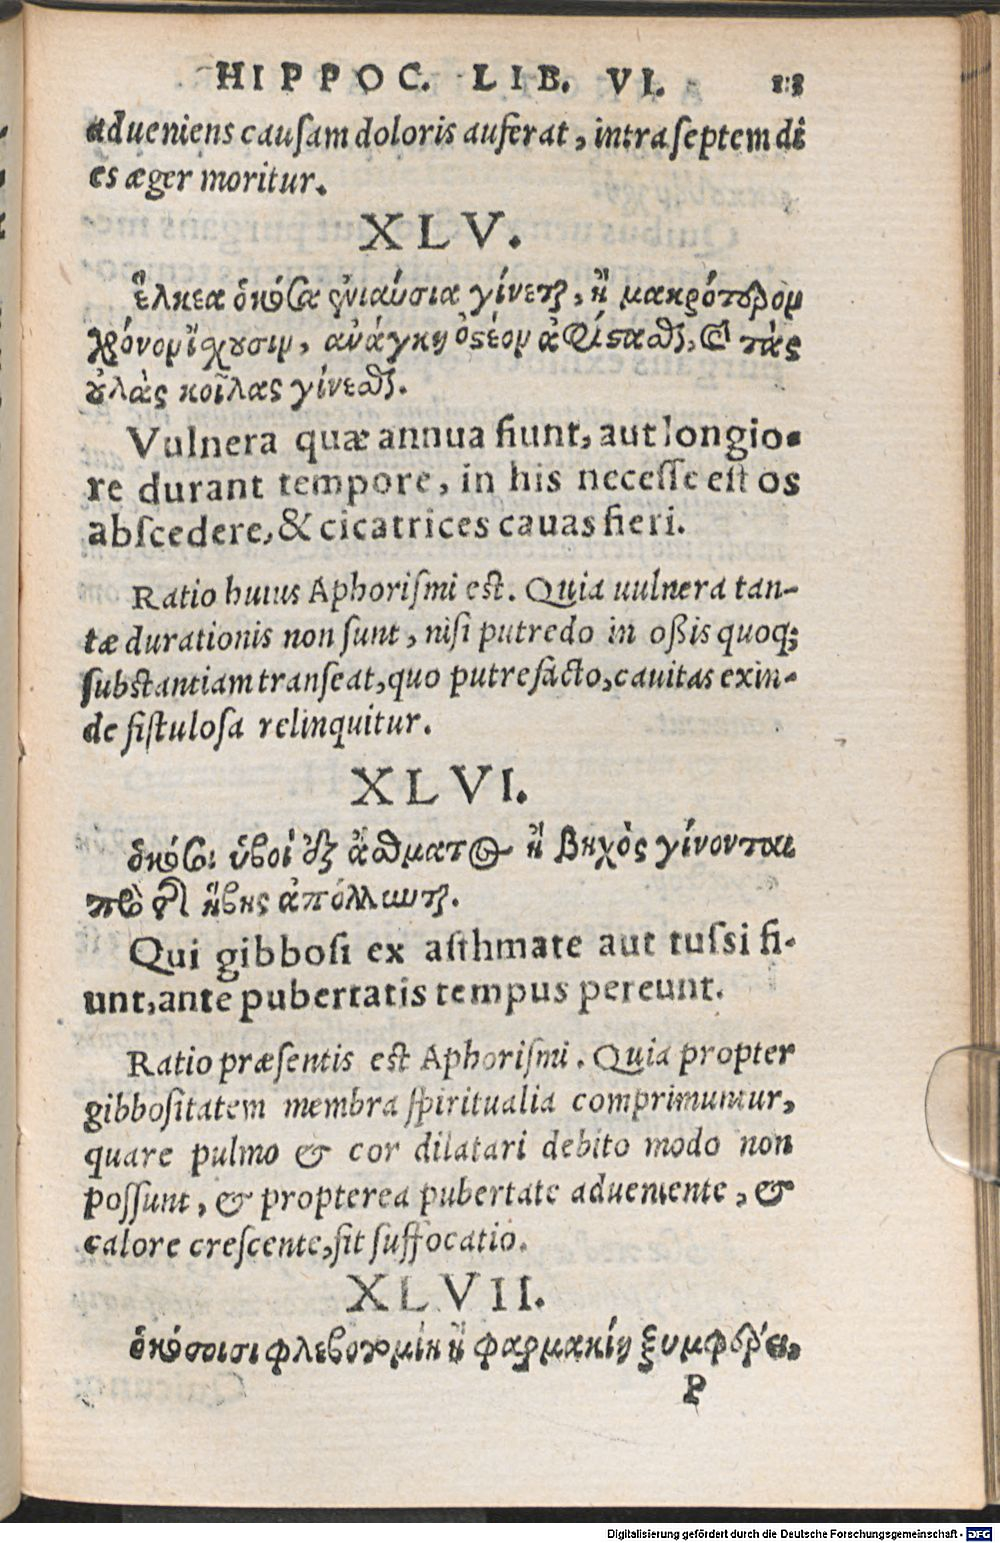 HIPPOC. LIB. VI. 113
adueniens causam doloris auferat, intra septem di
es æger moritur.
XLV.
ἕλκεα ὁκόσα ἐνιαύσια γίνεται, ἢ μακρότερον
χρόνον ἴσχουσιν, ἀνάγκη ὀστέον ἀφίστασθαι, καὶ τὰς
οὐλὰς κοῖλας γίνεσθαι.
Vulnera quæ annua fiunt, aut longio-
re durant tempore, in his necesse est os
abscedere, & cicatrices cauas fieri.
Ratio huius Aphorismi est. Quia uulnera tan-
tæ durationis non sunt, nisi putredo in oßis quoq;
substantiam transeat, quo putrefacto, cauitas exin-
de fistulosa relinquitur.
XLVI.
ὁκόσοι ὑβοὶ ἐξ ἄσθματος ἢ βηχὸς γίνονται
πρὸ τῆς ἥβης ἀπόλλωνται.
Qui gibbosi ex asthmate aut tussi fi-
unt, ante pubertatis tempus pereunt.
Ratio præsentis est Aphorismi. Quia propter
gibbositatem membra spiritualia comprimuntur,
quare pulmo & cor dilatari debito modo non
possunt, & propterea pubertate adueniente, &
calore crescente, fit suffocatio.
XLVII.
ὁκόσοισι φλεβοτομίη ἢ φαρμακίη ξυμφέρει,
P
Digitalisierung gefördert durch die Deutsche Forschungsgemeinschaft - DFG